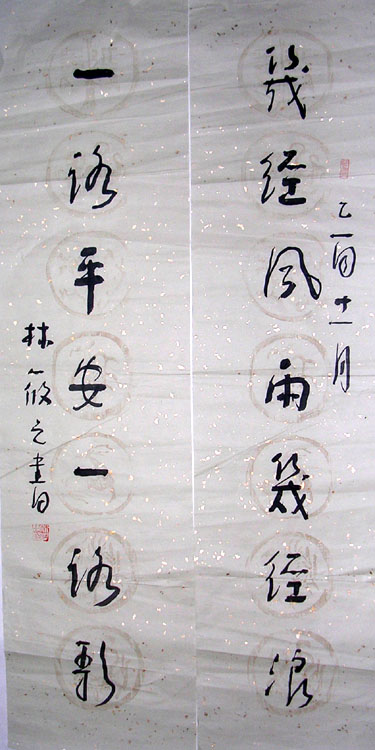 幾經風雨幾經浪
乙酉十一月
一路平安一路歌
林筱之書